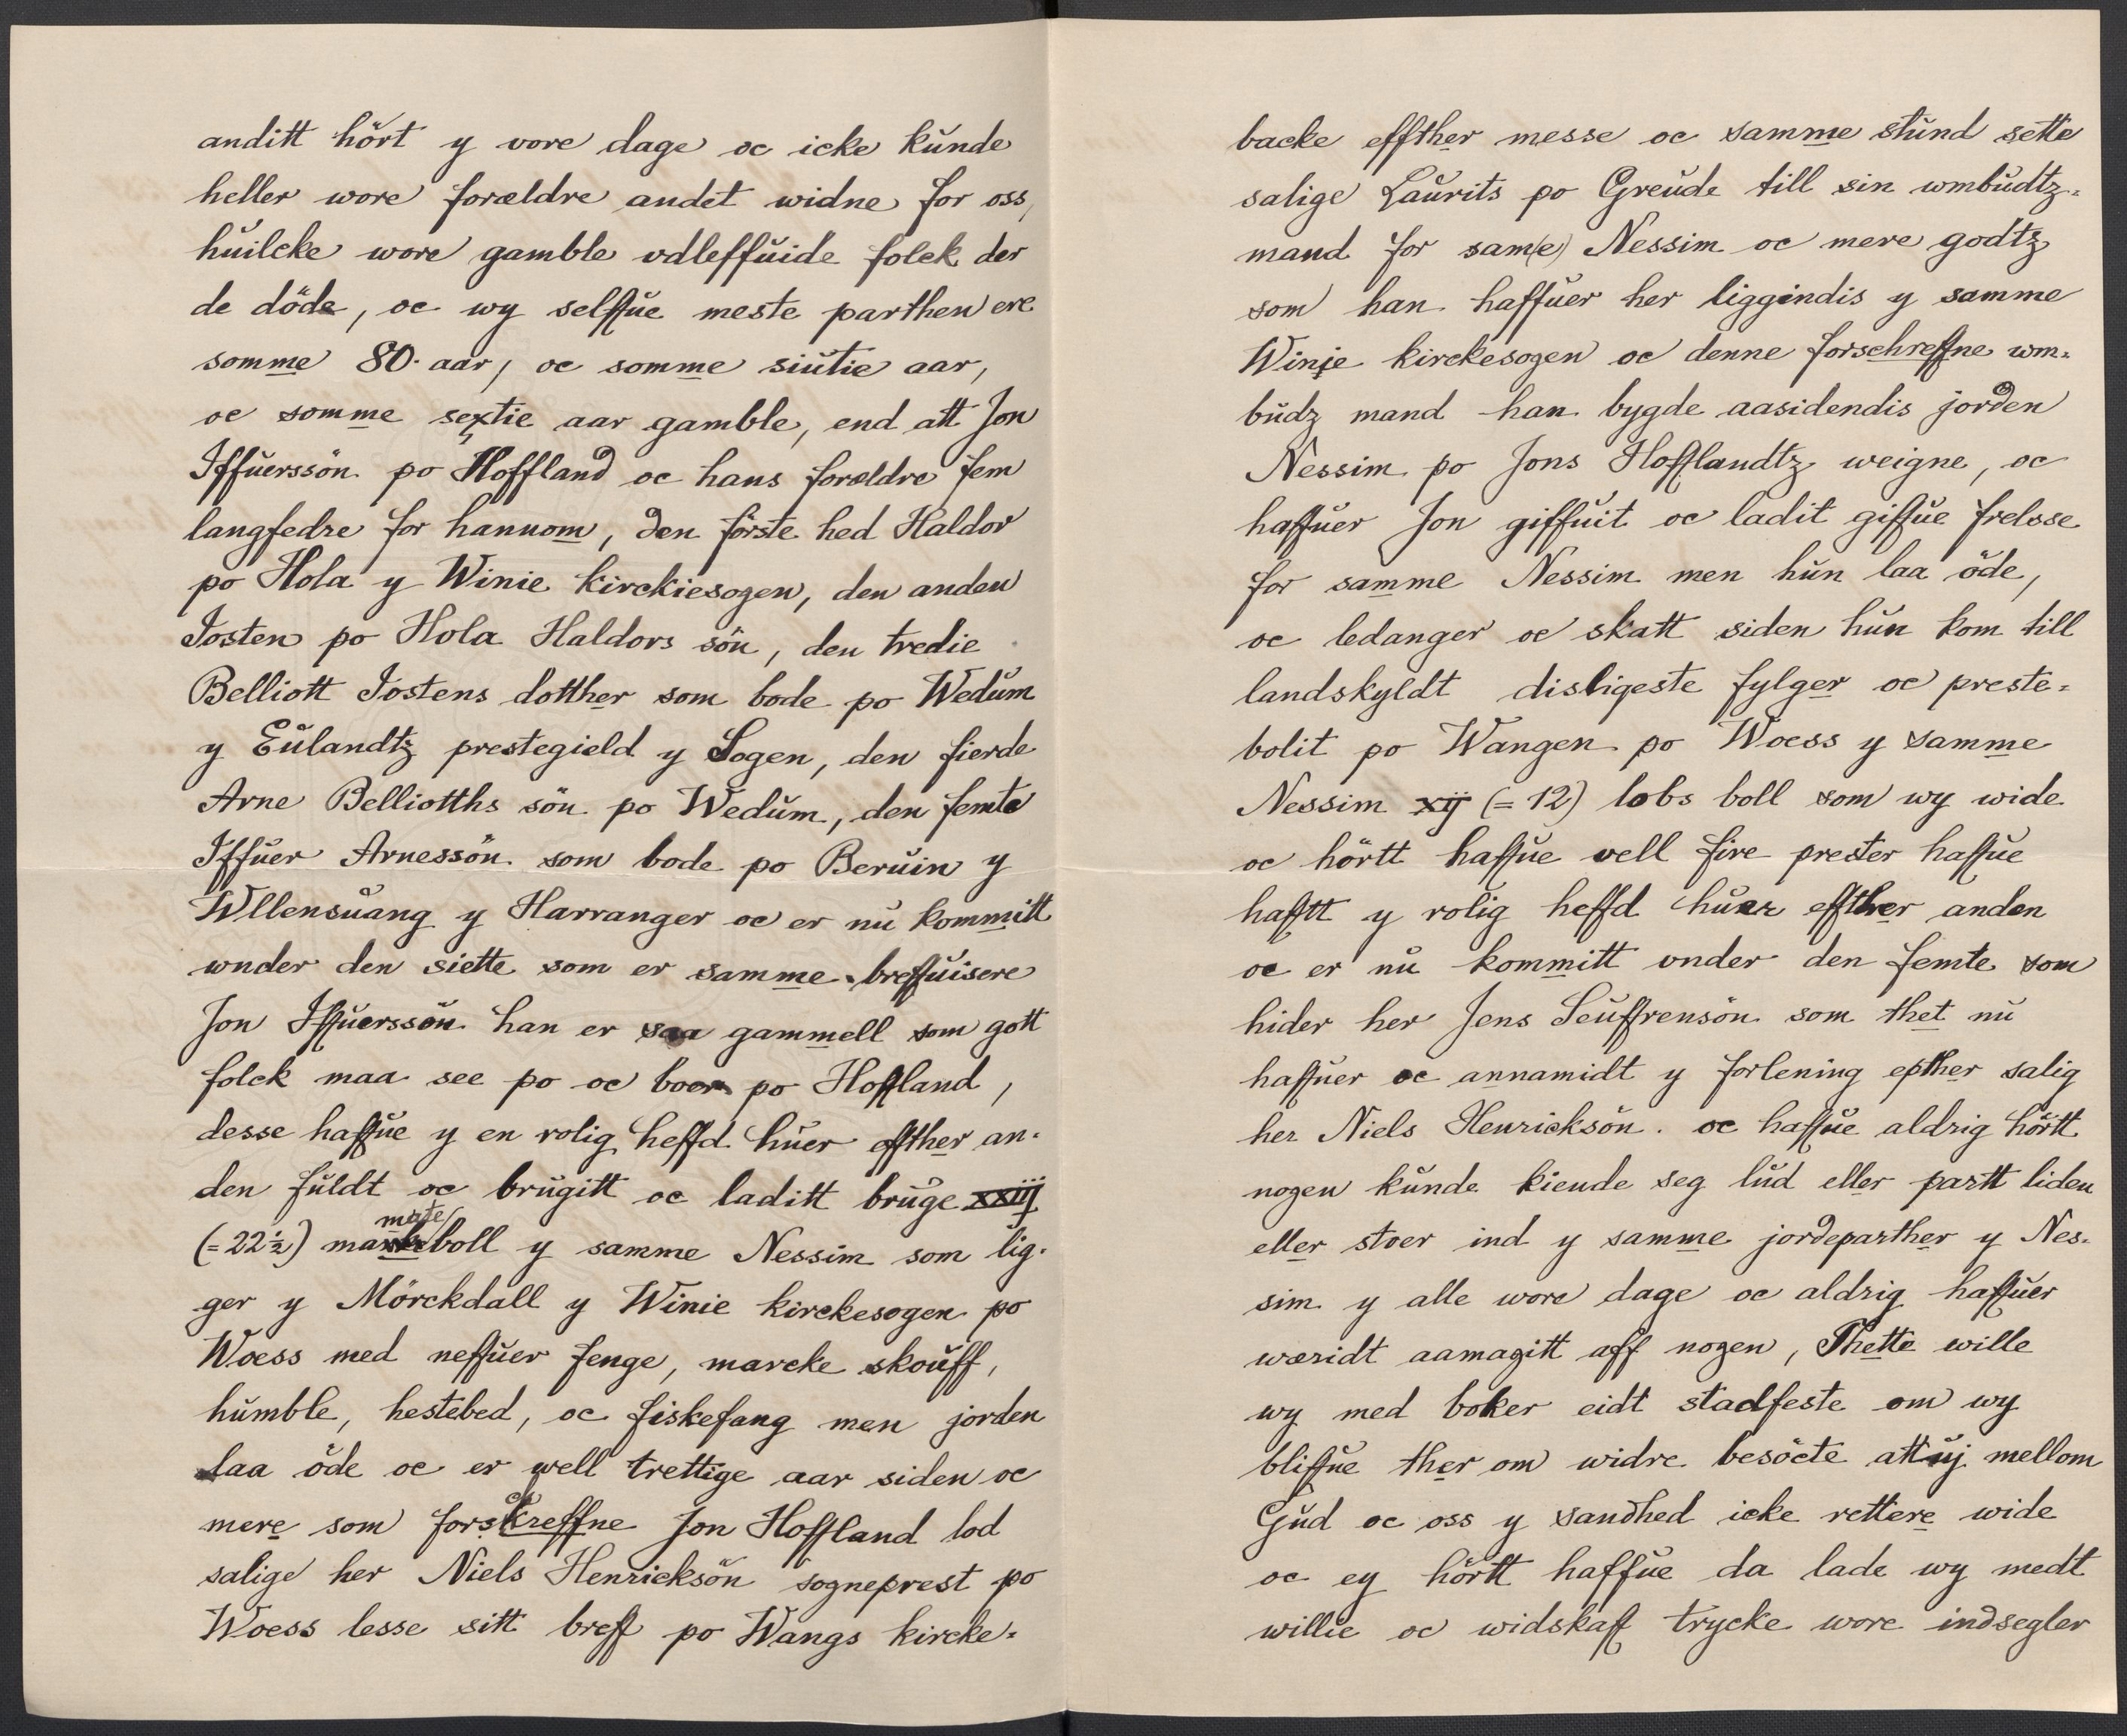 anditt hört y vore dage oc icke kunde
heller wore forældre andet widne for oss,
huilcke wore gamble vdleffuide folck der
de döde, oc wy selffue meste parthen ere
somme 80. aar, oc somme siutie aar,
oc somme sextie aar gamble, end att Jon
Iffuerssön po Hoffland oc hans forældre fem
langfedre for hannom, den förste hed Haldor
po Hola y Winie kirckiesogen, den anden
Iosten po Hola Haldors sön, den tredie
Belliott Iostens dotther som bode po Wedum
y Eulandtz prestegield y Sogen, den fierde
Arne Belliotths sön po Wedum, den femte
Iffuer Arnessön som bode po Beruin y
Wllensuang y Harranger oc er nu kommitt
wnder den siette som er samme breffuisere
Jon Iffuerssön han er saa gammell som gott
folck maa see po oc boer po Hoffland,
desse haffue y en rolig heffd huer effther an-
den fuldt oc brugitt oc laditt bruge xxiij
(= 22½) mate boll y samme Nessim som lig-
ger y Mörckdall y Winie kirckesogen po
Woess med neffuer fenge, marcke skouff,
humble, hestebed, oc fiskefang men jorden
laa öde oc er well trettige aar siden oc
mere som forsckreffne Jon Hoffland lod
salige her Niels Henricksön sogneprest po
Woess lesse sitt breff po Wangs kircke-
backe effther messe oc samme stund sette
salige Laurits po Greude till sin wmbudtz-
mand for sam(e) Nessim oc mere godtz
som han haffuer her liggindis y samme
Winje kirckesogen oc denne forschreffne wm-
budz mand han bygde aasidendis jorden
Nessim po Jons Hofflandtz weigne, oc
haffuer Jon giffuit oc ladit giffue frelsse
for samme Nessim men hun laa öde,
oc ledanger oc skatt siden hun kom till
landskyldt disligeste fylger oc preste-
bolit po Wangen po Woess y samme
Nessim xij (= 12) lobs boll som wy wide
oc hörtt haffue vell fire prester haffue
hafftt y rolig heffd huer effther anden
oc er nu kommitt vnder den femte som
hider her Jens Seuffrensön som thet nu
haffuer oc annamidt y forlening epther salig
her Niels Henricksön. oc haffue aldrig hörtt
nogen kunde kiende seg lud eller partt liden
eller stoer ind y samme jordeparther y Nes-
sim y alle wore dage oc aldrig haffuer
wæridt aamagitt aff nogen, Thette wille
wy med boker eidt stadfeste om wy
bliffue ther om widre besöcte att uj mellom
Gud oc oss y sandhed icke rettere wide
oc ey hörtt haffue da lade wy medt
willie oc widskaff trycke wore indsegler